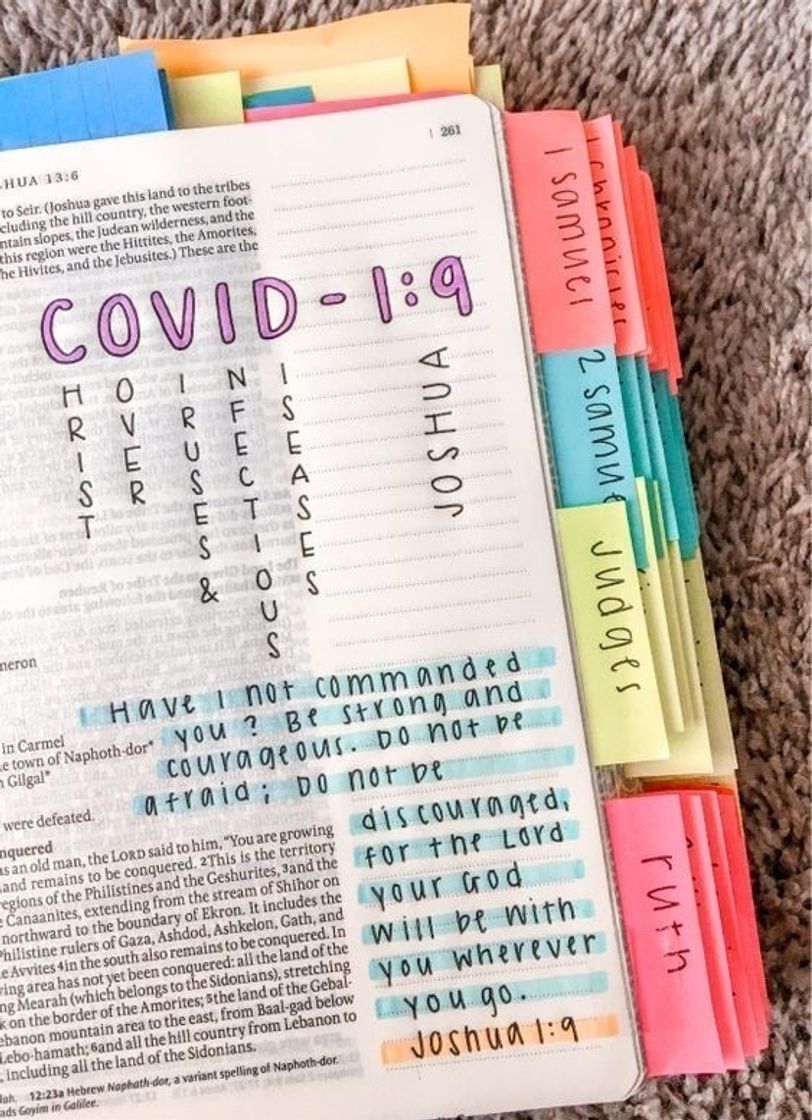 261
HUA 13:6
to Seir. (Joshua gave this land to the tribes
cluding the hill country, the western foot-
ntain slopes, the Judean wilderness, and the
this region were the Hittites, the Amorites,
he Hivites, and the Jebusites.) These are the
COVID-1:9
HRIST
OVER
IRUSES &
NFECTIOUS
ISEASES
JOSHUA
Have I not commanded
you? Be strong and
courageous. Do not be
afraid; Do not be
discouraged,
for the Lord
your God
will be with
you wherever
you go.
Joshua 1:9
meron
in Carmel
e town of Naphoth-dor*
Gilgal*
were defeated.
nquered
as an old man, the LORD said to him, “You are growing
and remains to be conquered. 2This is the territory
regions of the Philistines and the Geshurites, 3and the
Canaanites, extending from the stream of Shihor on
northward to the boundary of Ekron. It includes the
Philistine rulers of Gaza, Ashdod, Ashkelon, Gath, and
e Avvites 4in the south also remains to be conquered. In
ring area has not yet been conquered: all the land of the
ng Mearah (which belongs to the Sidonians), stretching
k on the border of the Amorites; 5the land of the Gebal-
ebanon mountain area to the east, from Baal-gad below
Lebo-hamath; 6and all the hill country from Lebanon to
including all the land of the Sidonians.
12:23a Hebrew Naphath-dor, a variant spelling of Naphoth-dor.
ads Goyim in Galilee.
1 samuel
1 chronicles
2 samue
Judges
ruth